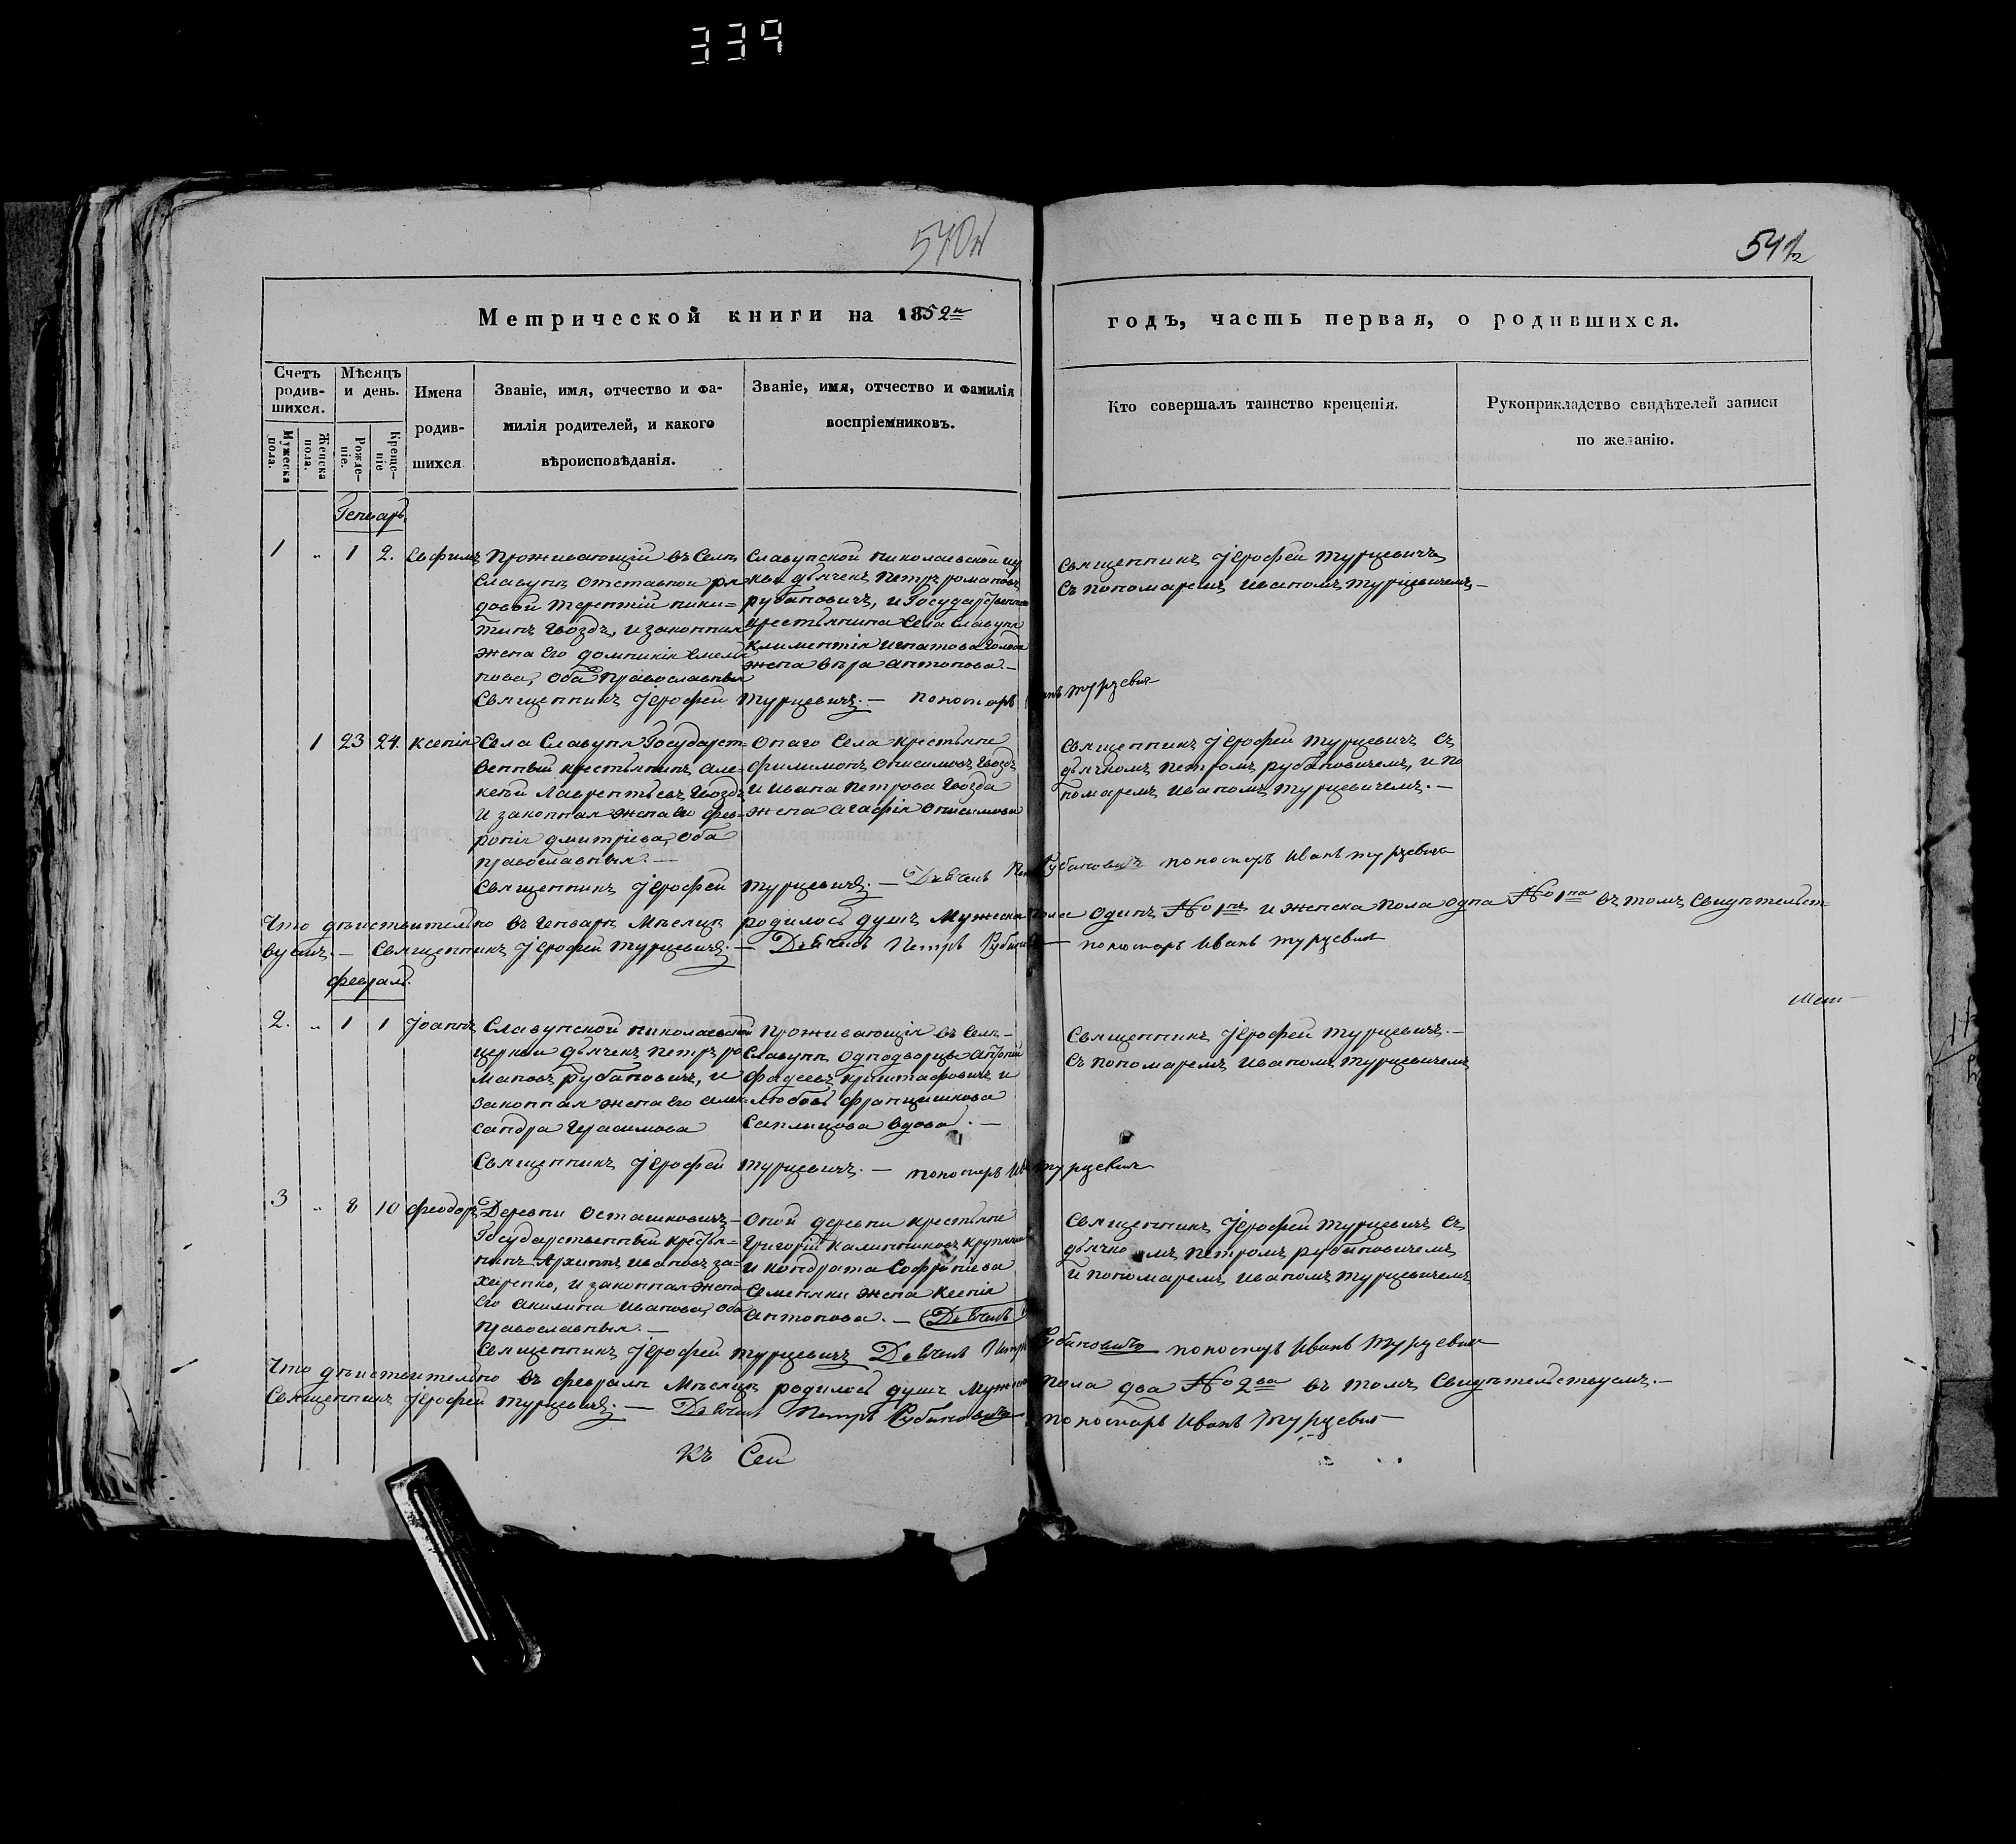 339
541
Метрической книги на 1852й
годъ, часть первая, о родившихся.
Счетъ родив-шихся.
Мужеска пола.
Женска пола.
Мѣсяцъ и день.
Рожде-ніе.
Креще-ніе
Имена
родив-
шихся
Званіе, имя, отчество и фа-
милія родителей, и какого
вѣроисповѣданія.
Званіе, имя, отчество и фамилія
воспріемниковъ.
Кто совершалъ таинство крещенія.
Рукоприкладство свидѣтелей записи
по желанію.
Генварь
1 „ 1 2.
Проживающій въ Селѣ
Славупѣ отставной ря-
довой Терентій Ники-
тинъ Гвоздь, и законная
жена Его Домникія Емель
нова, Оба Православныя
Славупской Николаевской цер
кви дьячекъ Петръ Романовъ
Рубановичъ, и Государственнаго
крестьянина Села Славупя
Климентія Игнатова
жена Вѣра Антонова.—
Священникъ Іерофей Турцевичъ
Съ пономаремъ Иваномъ Турцевичемъ.—
Священникъ Іерофей Турцевичъ.— Пономарь Турцевичъ
1 23 24. Ксенія
Села Славупя Государст-
венный крестьянинъ Але-
ксѣй Лаврентьевъ Гвоздь
И законная жена Его Фев-
ронія Дмитріева, Оба
Православныя.—
Онаго Села крестьяне
Филимонъ Онисимовъ Гвоздь
и Ивана Петрова Гвозда
жена Агафія Онисимова
Священникъ Іерофей Турцевичъ Съ
дьячкомъ Петромъ Рубановичемъ, и по
номаремъ Иваномъ Турцевичемъ.—
Священникъ Іерофей Турцевичъ.— Дьячекъ Рубановичъ пономарь Иванъ Турцевичъ
Что дѣйствительно въ Генварѣ Мѣсяцѣ родилось душъ Мужеска пола Одинъ №1нъ и женска Пола одна №1на въ томъ Свидѣтельст-
вуемъ.— Священникъ Іерофей Турцевичъ.— Дьячекъ Петръ Рубановичъ— пономарь Иванъ Турцевичъ
Февраль.
2. „ 1 1 Іоаннъ
Славупской Николаевской
церкви дьячекъ Петръ Ро
мановъ Рубановичъ, и
Законная жена Его Алек-
сандра Герасимова
Проживающія въ Селѣ-
Славупѣ Однодворцы Антоній
Фадеевъ Криштафовичъ и
Любовь Францишкова
вдова.—
Священникъ Іерофей Турцевичъ.—
Съ пономаремъ Иваномъ Турцевичемъ
Священникъ Іерофей Турцевичъ.— пономарь Турцевичъ
3 „ 8 10 Феодоръ
Деревни Осташковичъ-
Государственный крестья-
нинъ Архипъ Ивановъ За-
харенко, и законная жена
Его Акилина Иванова, Оба
Православныя.—
Оной деревни крестьяне
Григорій Калинниковъ
и Кондрата Софроніева
Семеняки жена Ксенія
Антонова.— Дьячекъ
Священникъ Іерофей Турцевичъ Съ
дьячкомъ Петромъ Рубановичемъ
И пономаремъ Иваномъ Турцевичемъ
Священникъ Іерофей Турцевичъ Дьячекъ Петръ Рубановичъ пономарь Иванъ Турцевичъ
Что дѣйствительно въ Февралѣ Мѣсяцѣ родилось душъ Мужеска Пола два №2ва въ томъ Свидѣтельствуемъ.—
Священникъ Іерофей Турцевичъ.— Дьячекъ Петръ Рубановичъ пономарь Иванъ Турцевичъ
Къ Сей